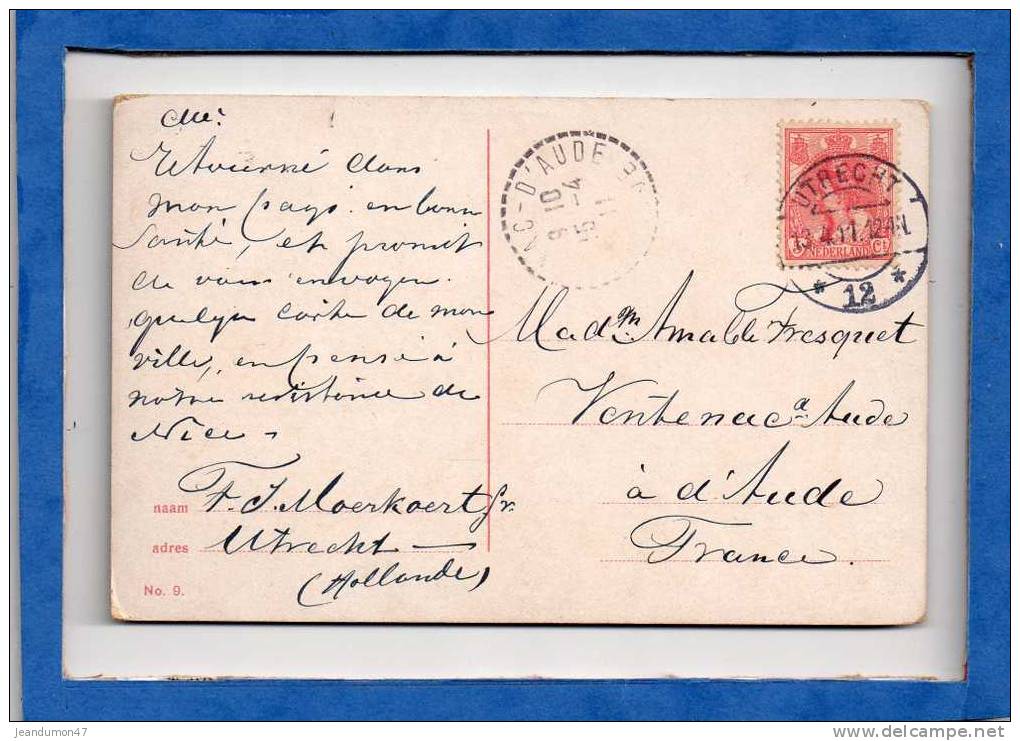 Retourné dans
mon pays en bonne
santé, et promit
de vous envoyer
quelque carte de mon
ville, en pensé à
notre
Nice
naam F. J. Moerkoert Jr.
adres Utrecht
(Hollande)
No. 9.
D'AUDE
10 -4
11
UTRECHT
13.4.11.
12
NEDERLAND
Mad Amable Fresquet
Ventenac d' Aude
à d'Aude
France.
jeandumon47
www.delcampe.net